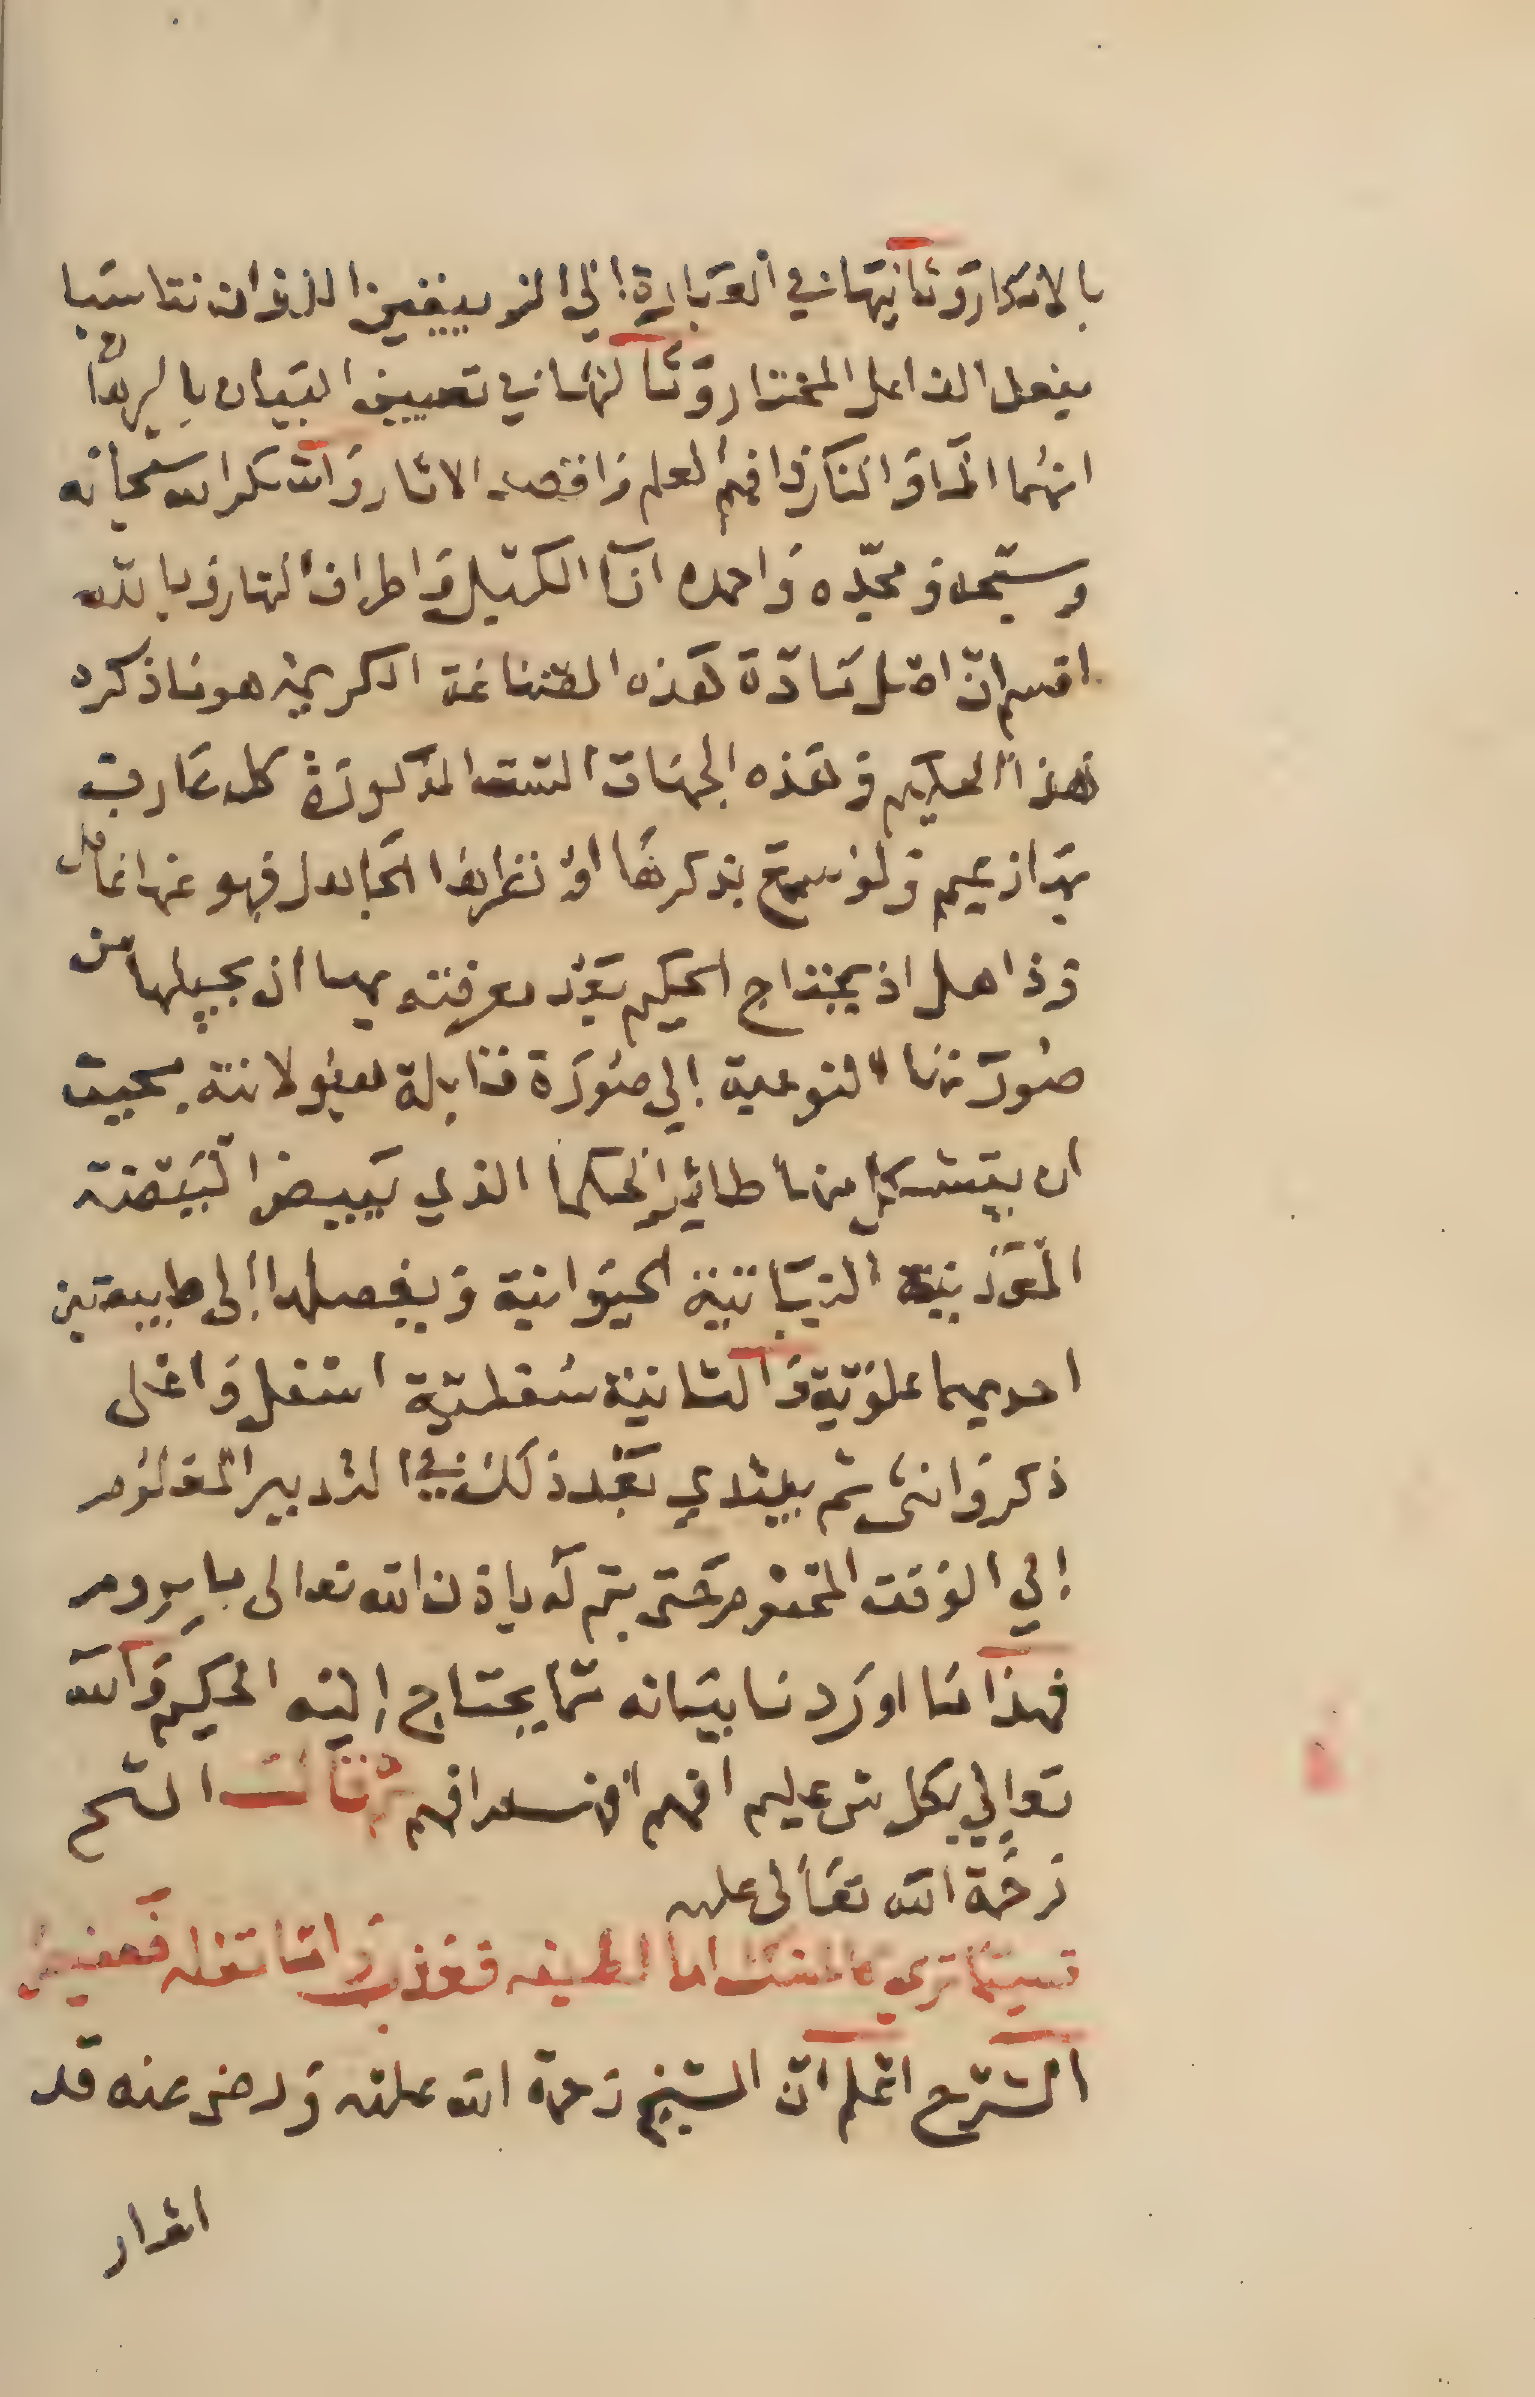 بالافكار وثانيها في العبارة إلي الز يبقين اللذان تناسبا
بفعل الفاعل المختار وثالثها في تعيين البيان بالبرهان
انهما الما والنار فافهم العلم واقصد الاثار واشكر الله سبحانه
وسبحه ومجّده واحمده انآ الليل واطراف النهار وبالله
اقسم انّ اصل مادّة هذه الصناعة الكريمة هو ما ذكره
هذا الحكيم وهذه الجهات الست المذكورة كل عارف
بها زعيم ولو سمع بذكرها او نظرها الجاهل فهو عنها غافل
وذاهل اذ يحتاج الحكيم بعد معرفته بها ان يحيلها من
صورتها النوعية إلي صورة قابلة هيولانية بحيث
ان يتشكل منها طائر الحكما الذي يبيض البيضة
المعدنية النباتية الحيوانية ويفصلها إلى طبيعتين
احديهما علويّة والثانية سفليّة اسفل واعلى
ذكر وانثى ثم يبتدي بعد ذلك في التدبير المعلوم
إلي الوقت المحتوم حتى يتم له باذن الله تعالى ما يروم
فهذا ما اوردنا بيانه مما يحتاج إليه الحكيم والله
تعالي بكل شي عليم افهم افهم افهم ثم قال الشيخ
رحمة الله تعالى عليه
الشرح اعلم انّ الشيخ رحمة الله عليه ورضي عنه قد
اشار